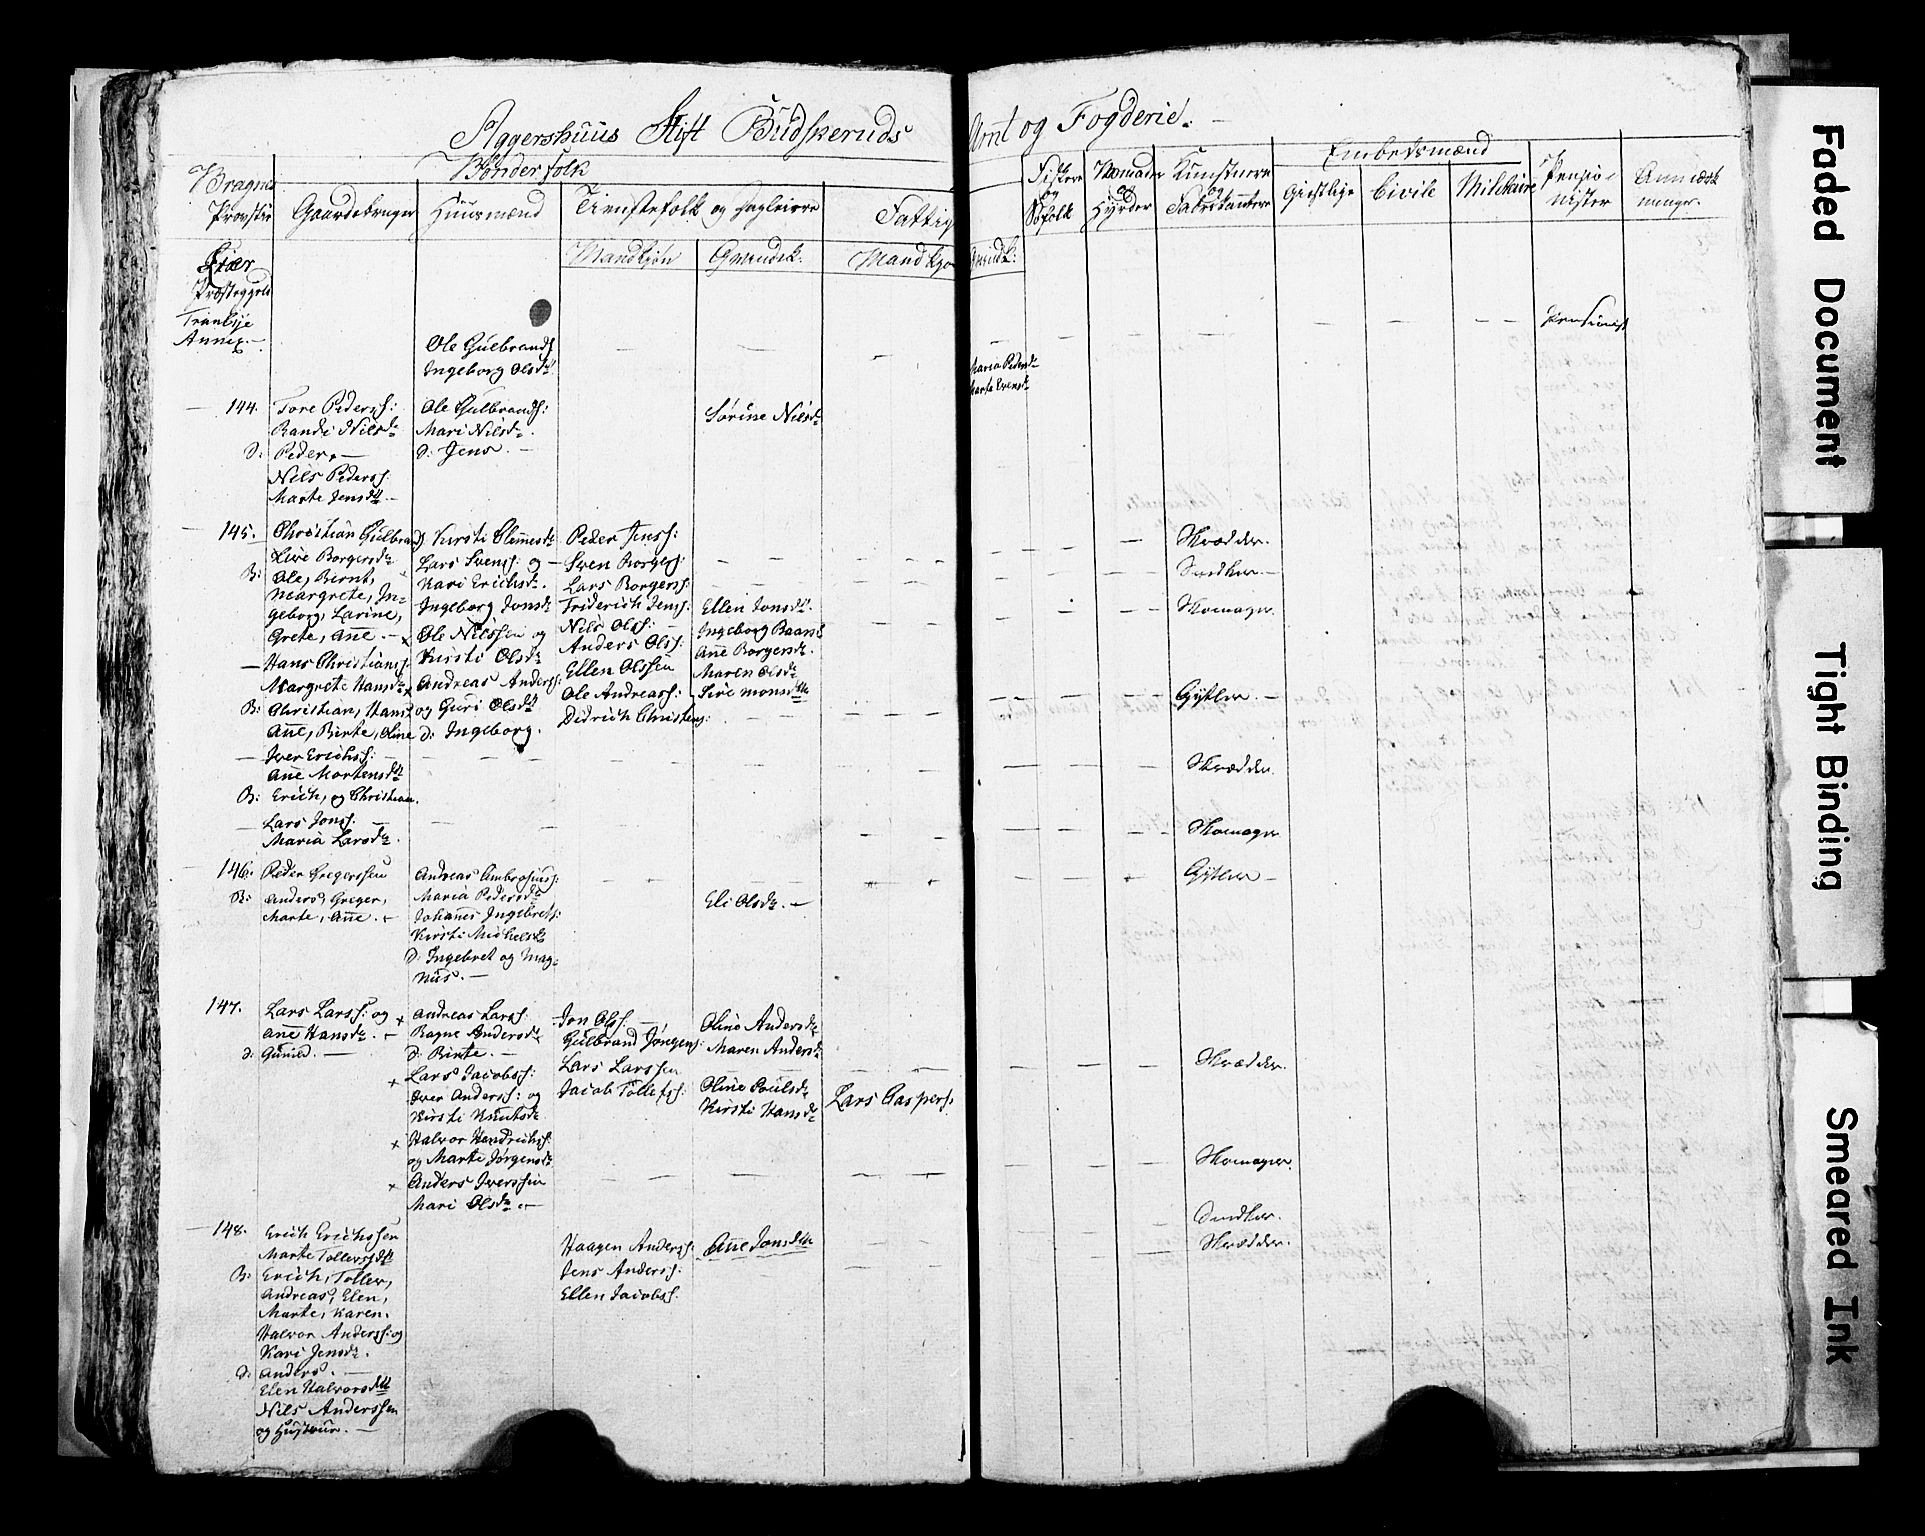 Aggershuus Stift Budskeruds Amt og Fogderie.
Bragnes Provstie
Bønderfolk
Gaardebruger
Huusmænd
Tienstefolk og Dagleiere
Mandkjøn
Qvindek:
Fattig
Mandkjø
Qvindk:
Fiskere og Søfolk
Nomader og Hyrder
Kunstnere og Fabrikantere
Embetsmænd
Giestlige
Civile
Militaire
Pensionister
Anmærkninger
Lier
Præsteggeld
Tranbye
Annex.
Ole Gulbrands
Ingeborg Olsdr
Maria Pedersdr
Marte Evensdr
Pensionist
144. Tore Peders:
Randi Nilsdr
D: Peder. —
Nils Peders:
Marte Jensdtr —
Ole Gulbrands:
Mari Nilsdr.
D: Jens. —
Sørine Nilsdr
145. Christian Gulbrands
Live Borgersdr
B: Ole, Bernt,
Margrete, In-
geborg, Larine,
Grete, Ane. —
— Hans Christians:
Margrete Hansdr
B: Christian, Hans,
Ane, Birte, Oline
— Iver Erichs:
Ane Mortensdtr
B: Erich, og Christian.
— Lars Jons:
Maria Larsdr.
Kirsti Clemesdr
Lars Svens: og
Kari Erichsdr.
Ingeborg Jonsdr
× Ole Nilssen og
Kirsti Olsdr
× Andreas Anders:
og Guri Olsdtr
D: Ingeborg.
Peder Jens:
Sven Borges:
Lars Borgers:
Friderich Jens:
Nils Ols: —
Anders Ols:
Ellen Olssen
Ole Andreas:
Didrich Christens:
Ellen Jonsdtr.
Ingeborg Baars
Ane Borgersdr.
Maren Olsdr
Sire Monsdtr
Skrædder.
Snedker. —
Skomager.
Gjøtler. —
Skrædder.
Skomager
146. Peder Gregerssen
B: Anders, Greger,
Marte, Ane. —
Andreas Ambrosius:
Maria Pedersdr
Johannes Ingebrets:
Kirsti Michelsdr
D: Ingebret og Mag-
nus. —
Eli Olsdr. —
Gjøtler —
147. Lars Lars: og
Ane Hansdr. —
D: Gunild. —
× Andreas Lars:
Ragne Andersdr
D: Birte. —
× Lars Jacobs:
Iver Anders: og
Kirsti Knutsdr
× Halvor Hendrichs:
og Marte Jørgensdr
× Anders Iverssen
Mari Olsdr. —
Jon Ols: —
Gulbrand Jørgens:
Lars Larssen
Jacob Tollefs:
Oline Andersdr
Maren Andersdr
Oline Poulsdr
Kirsti Hansdr
Lars Caspers:
Skrædder.
Skomager.
Snedker.
148. Erich Erichssen
Marte Tollersdtr
B: Erich, Toller,
Andreas, Elen,
Marte, Karen.
Halvor Anders: og
Kari Jensdr.
D: Anders. —
Elen Halvorsdtr
Nils Anderssen
og Hustrue. —
Haagen Anders:
Jens Anders:
Ellen Jacobs:
Ane Jonsdtr
Skrædder.
Faded Document
Tight Binding
Smeared Ink